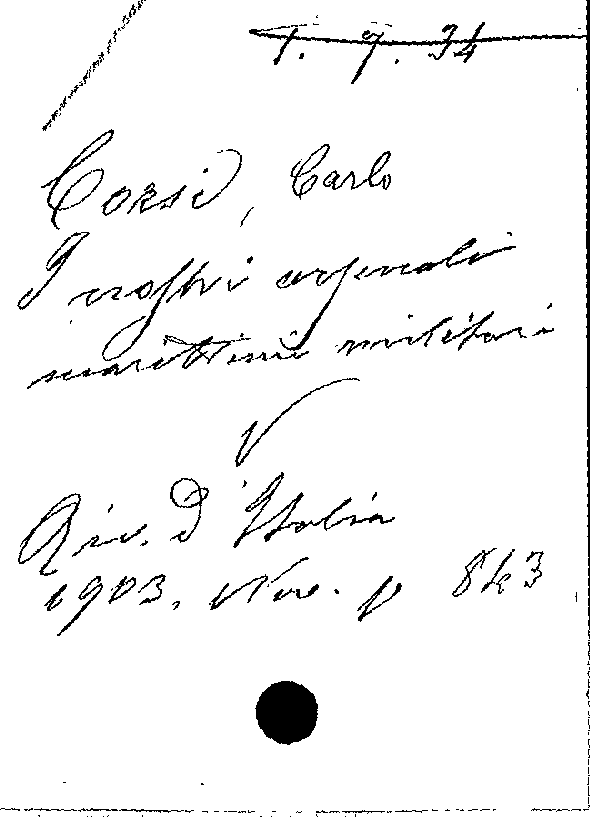 1. 9. 34
Corsi, Carlo
I nostri arsenali
marittimi militari
Riv. d'Italia
1903. Nov. p 843